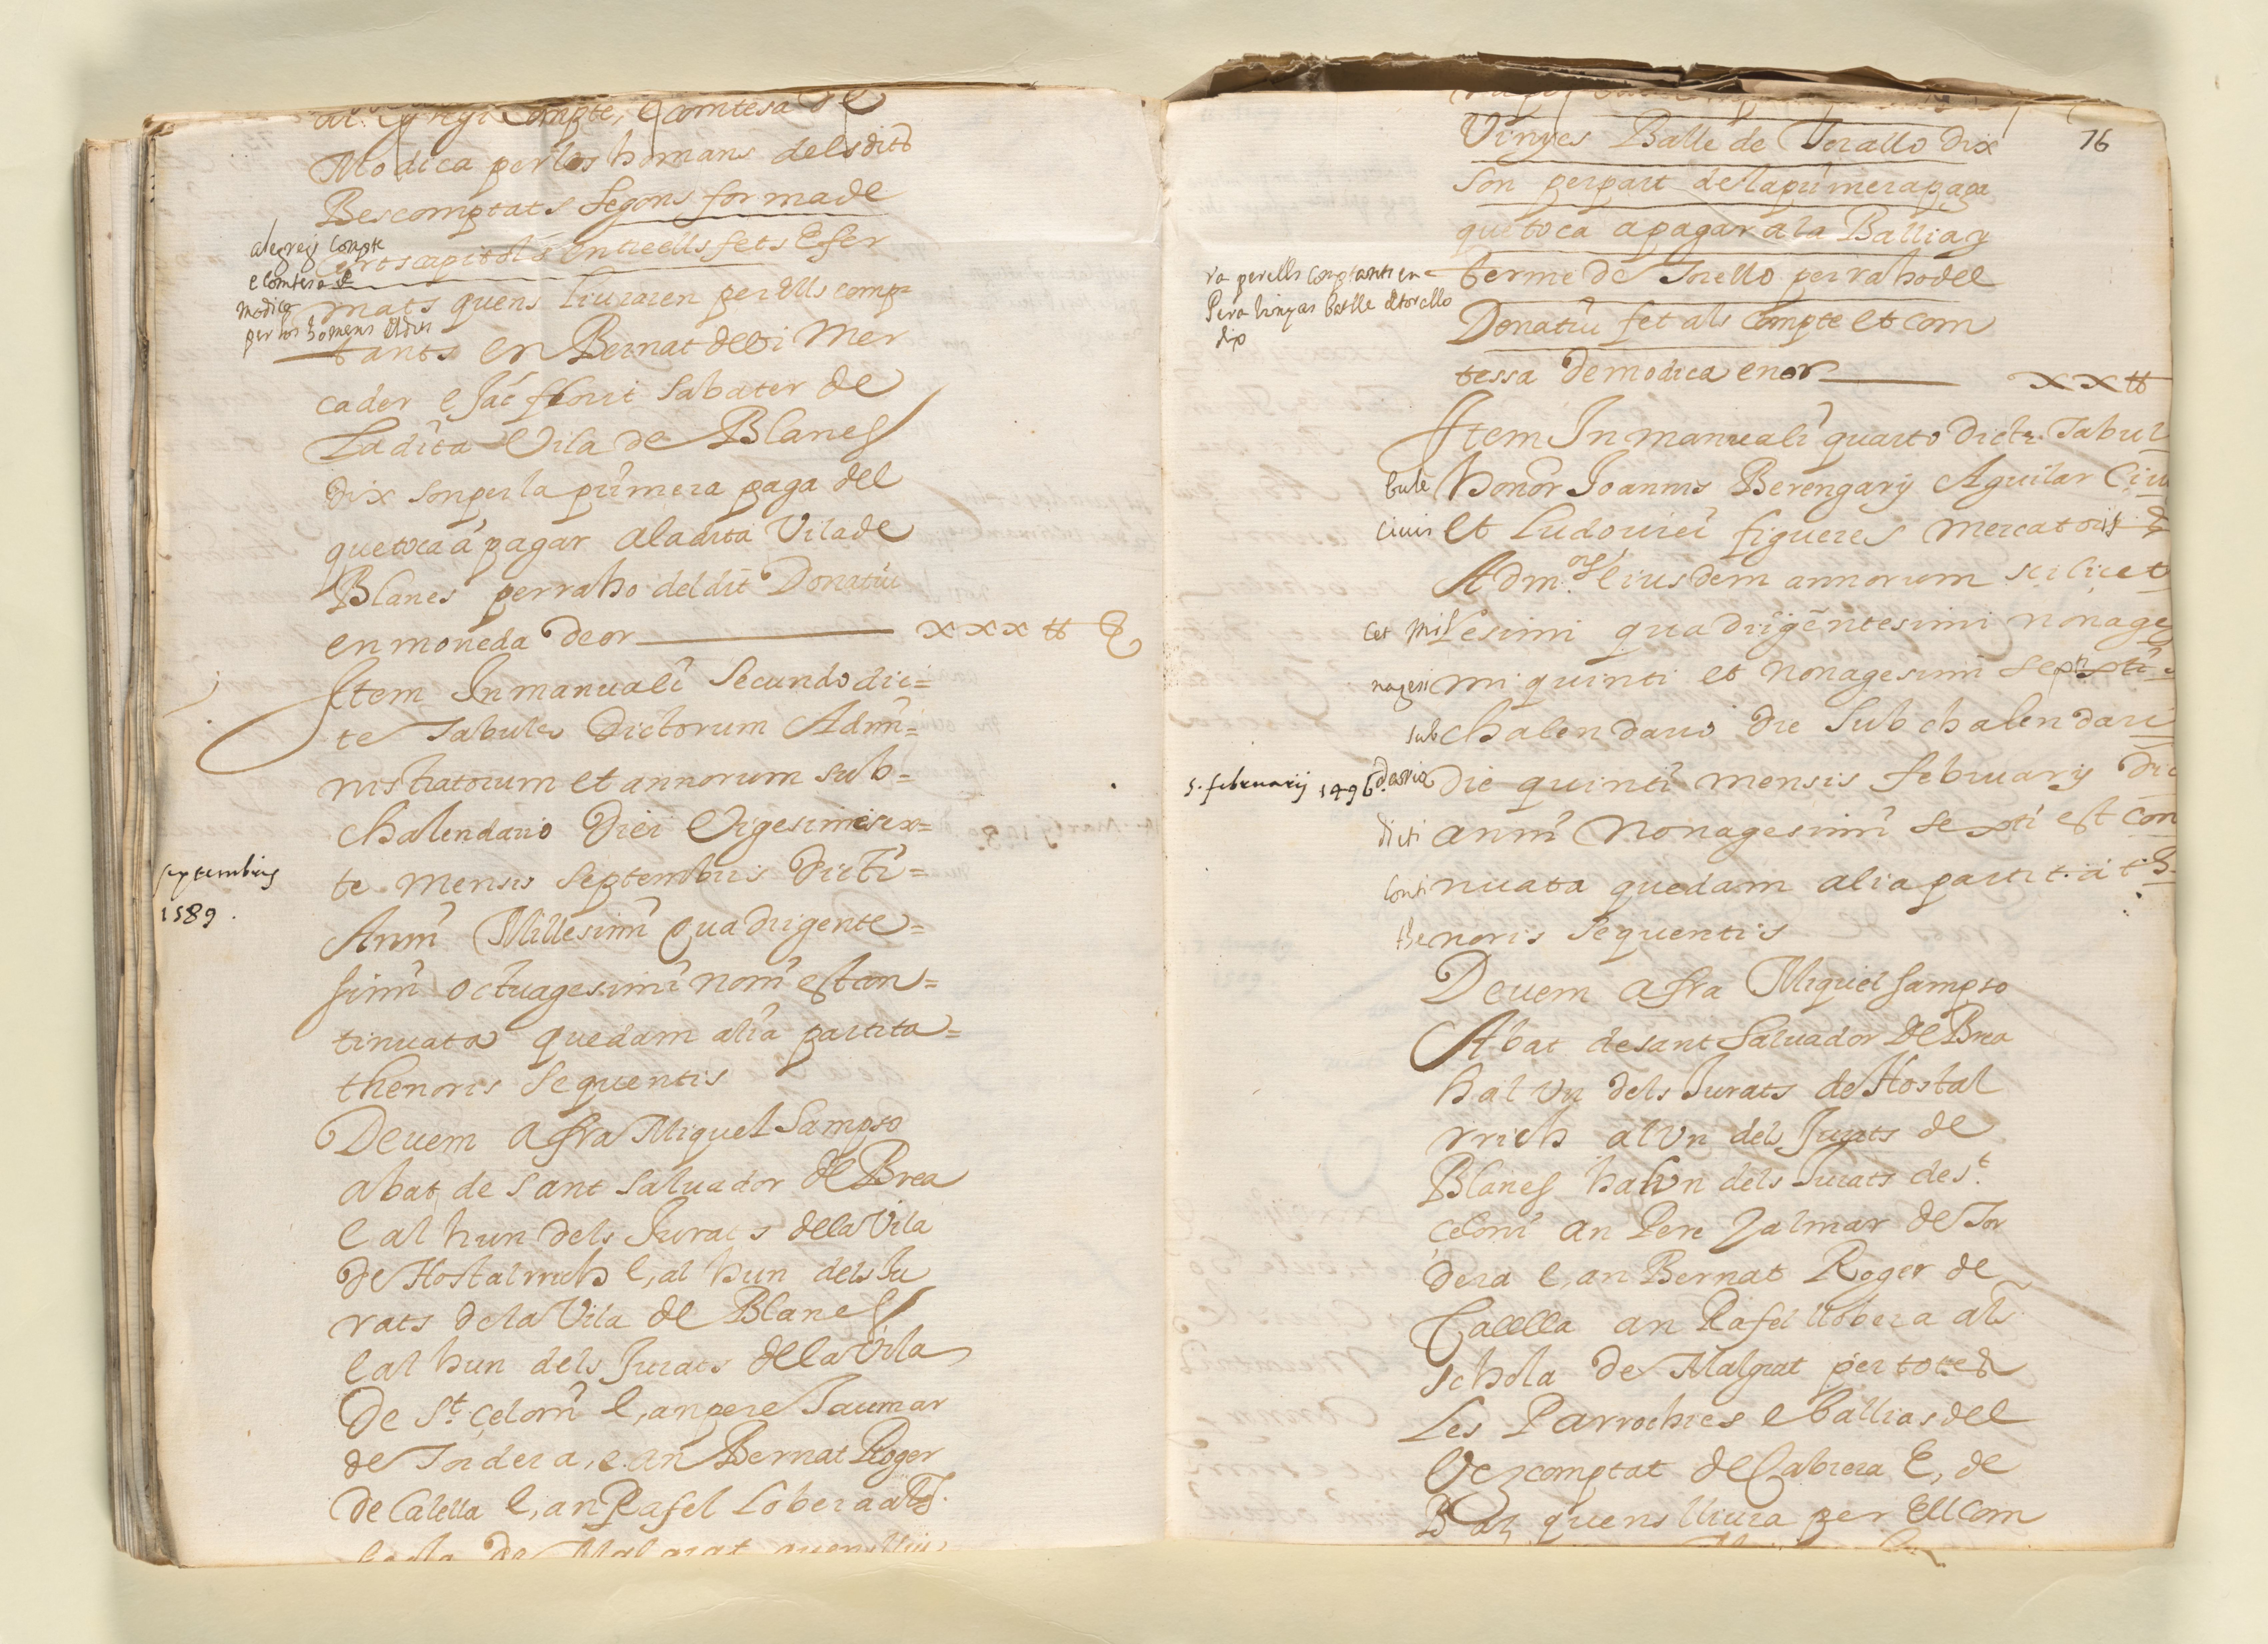 al Egregi Compte, e comtesa de
Modica per los homans dels dits
Bescomptats segons forma de
alegreg Compte
certs capitols entre ells fets E fer
e Comtesa de
Modica
mats quens liuraren per ells comp=
per los homens deldits
tants en Bernat devi Mer
cader e Jac florit sabater de
La dita Vila de Blanes
dix son per la primera paga del
que toca à pagar a la dita Vila de
Blanes per raho del dit Donatiu
en moneda de or xxx tt
Item In manuali secundo dic=
te Tabule dictorum Admi=
nistratorum et annorum sub=
chalendario diei vigesimesex=
te mensis septembris dicti=
septembris
1589.
Anni Millesimi quadrigente=
simi octuagesimi noni est con=
tinuata quedam alia partita=
thenoris sequentis
Deuem a fra Miquel Sampso
abat de sant saluador de Brea
e al hun dels Jurats dela Vila
de Hostalrich e, al hun dels Ju
rats dela Vila de Blanes
e al hun dels Jurats dela Vila
de St. Çeloni e, an pere Jaumar
de Tordera, e an Bernat Roger
de Calella e, an Rafel Lobera als.
de Malgrat quens lliu
76
Vinyes Balle de Torallo dix
son per part de la primera paga
que toca a pagar a la Ballia y
ra perells comptants en
terme de Torello per raho del
Pera vinyas batlle de torello
dix
Donatiu fet als Compte et com
tessa de modica en or xx tt
Item In manuali quarto dicte Tabul
bule honor Joannis Berengarij Aguilar Ciu
Ciuis et Ludouici figueres mercatoris &
Adm.ors eiusdem annorum scilicet
Cet Milesimi quadrigentesimi nonage
nagesi mi quinti et nonagesimi septi
sub chalendario die sub chalendari
5. februarij 1496 dario die quinti mensis february dic
dicti anni nonagesimi sexti est con
conti nuata quedam alia partit.a t
the noris sequentis
Deuem a fra Miquel Sampso
Abat de sant Saluador de Brea
hal vn dels Jurats de Hostal
rrich al vn dels Jurats de
Blanes hal vn dels Jurats de st.
çeloni an Pere Jalmar de Tor
dera e, an Bernat Roger de
Calella an Rafel llobera als
schola de Malgrat per totes
Les Parrochies e ballias del
Vezcomptat de Cabrera E, de
Bas quens lliura per Ell com